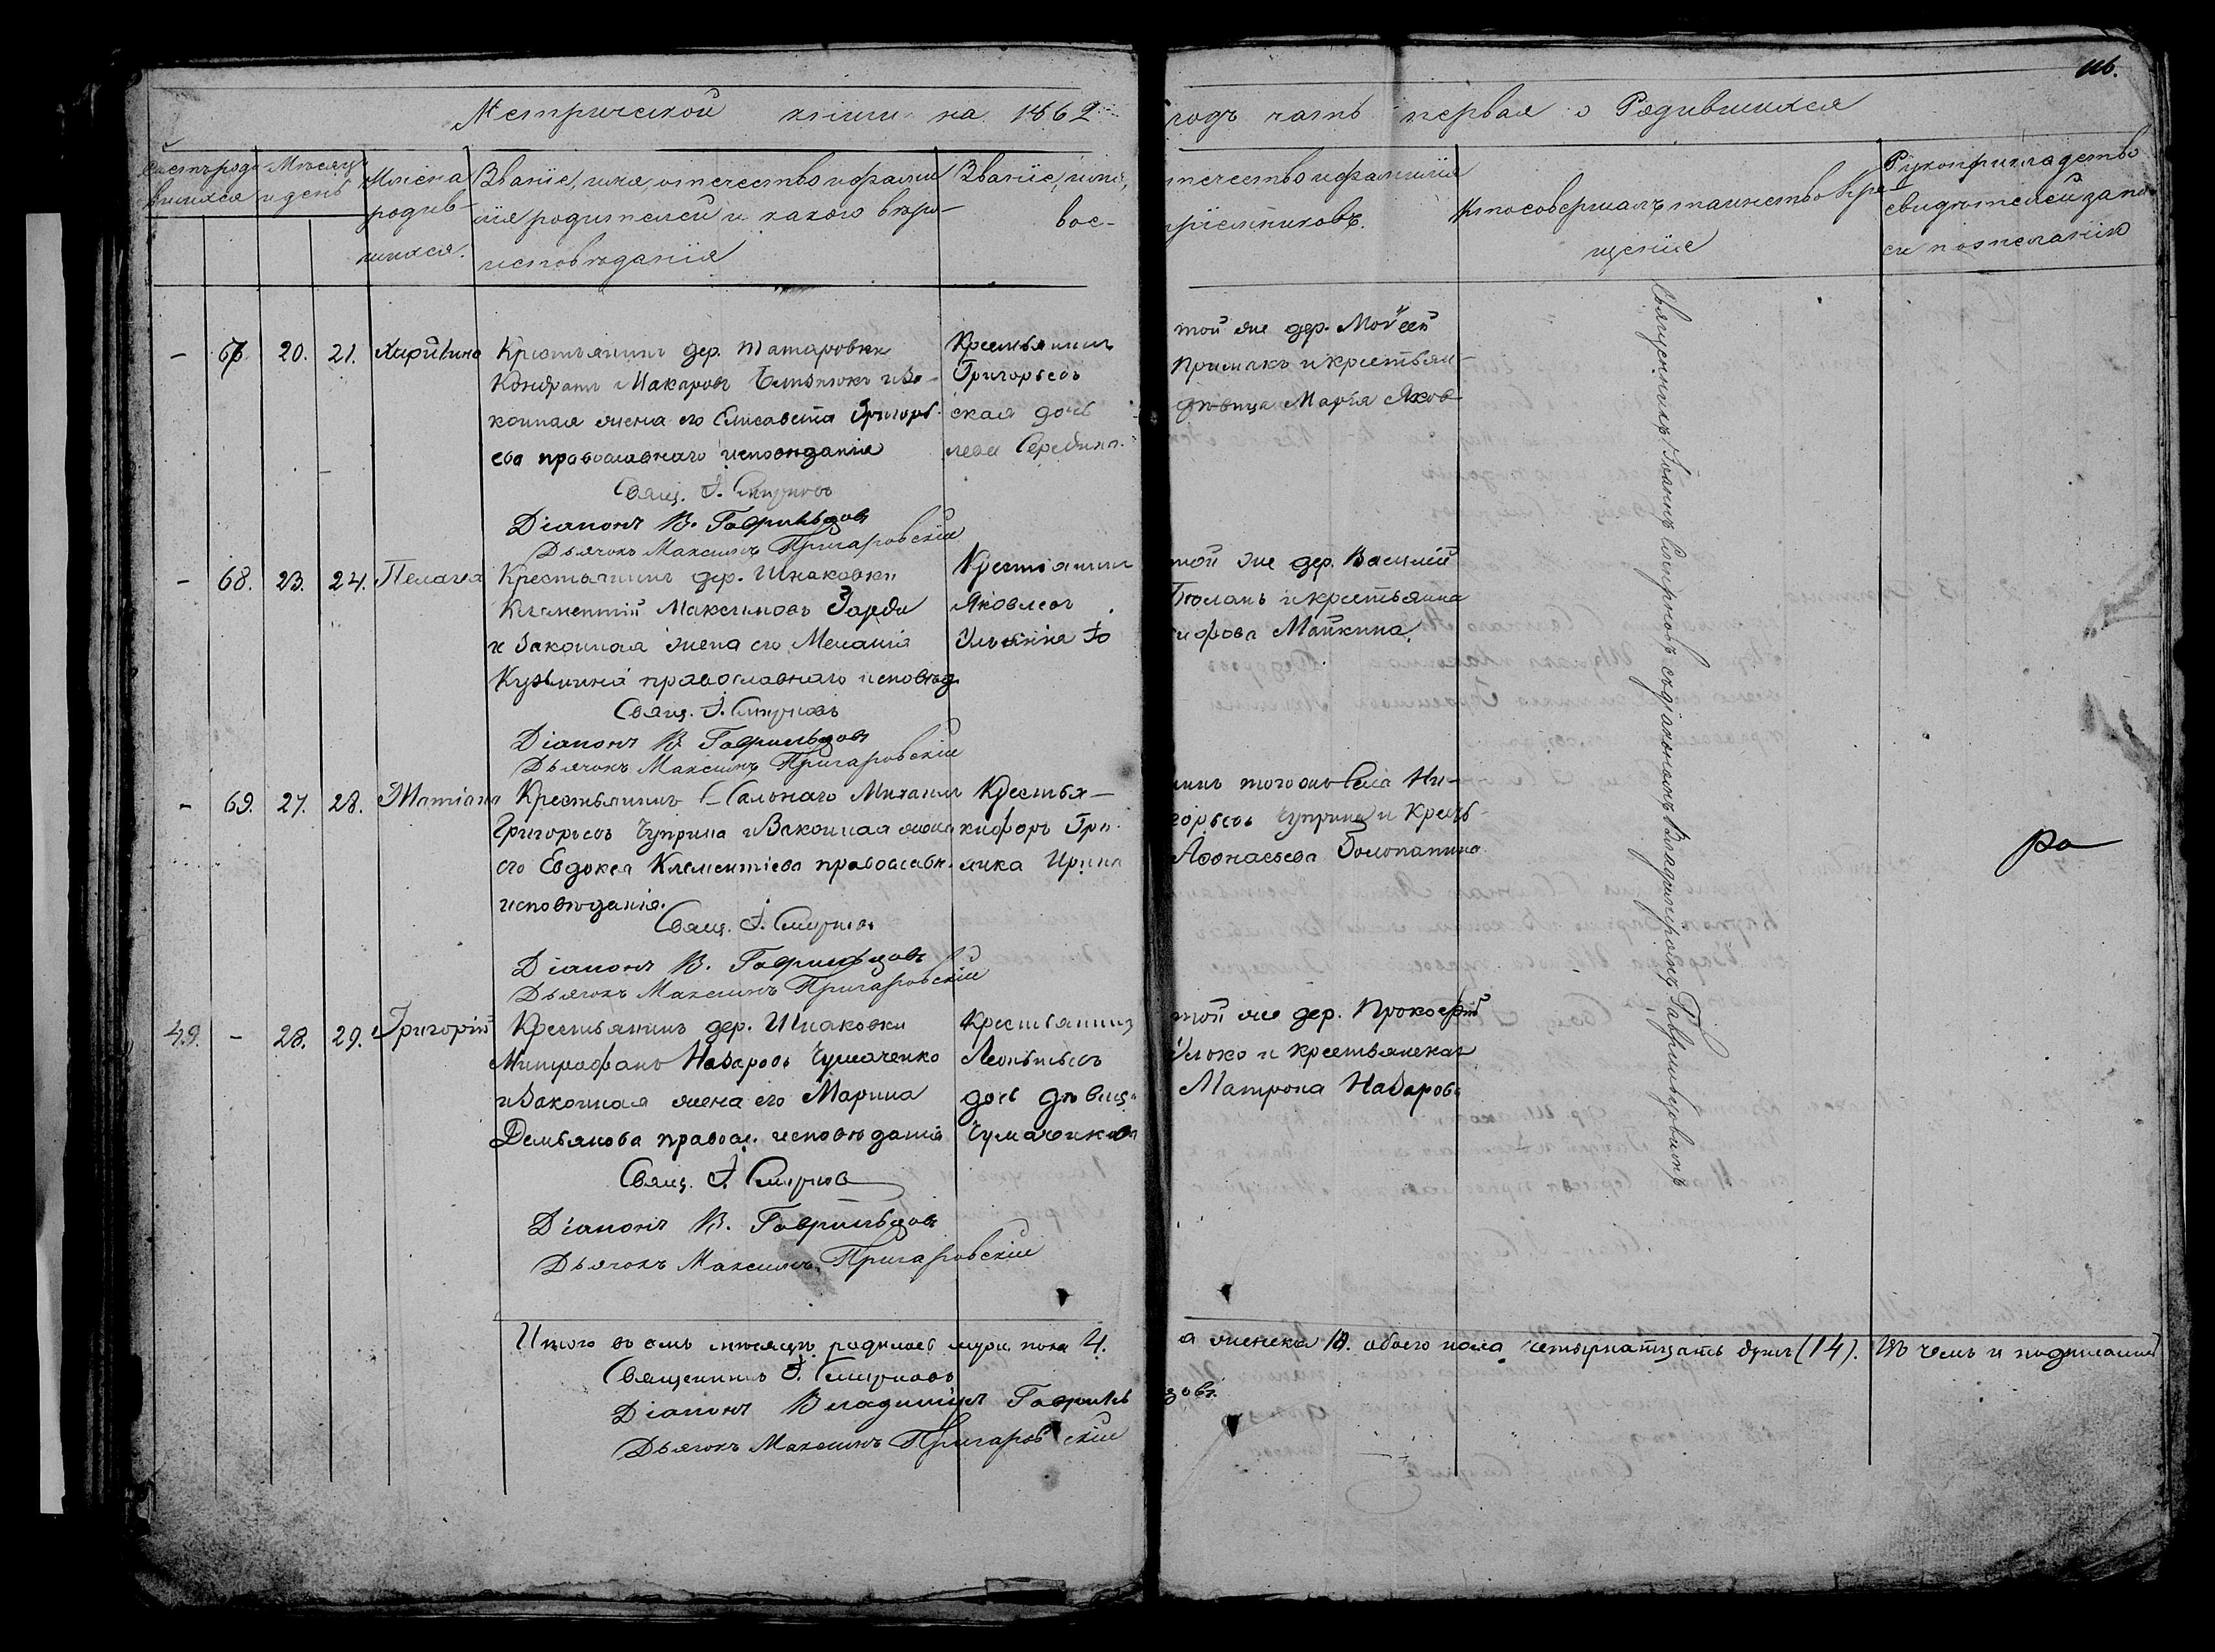 116.
Метрической книги на 1862
годъ часть первая о Родившихся
Счетъ роди-
вшихся
Мѣсяцъ
и день
Имена
родив-
шихся.
Званіе, имя, отечество и фамил
лія родителей и какого вѣро-
исповѣданія
Званіе, имя,
вос-
отечество и фамилія
пріемниковъ.
Кто совершалъ таинство Кре
щенія
Рукоприкладство
свидѣтелей запи
си по желанію
– 67. 20. 21. Харитина
Крестьянинъ дер. Татаровки
Кондратъ Макаровъ и За-
конная жена его Елисавета Григорь
ева православнаго исповѣданія
Свящ. І. Смирновъ
Діаконъ В. Гаврильцовъ
Дьячокъ Максимъ Пригаровскій
Крестьянинъ той же дер. Моѵсей
Григорьевъ Примакъ и крестьян-
ская дочь дѣвица Марія Яков
лева
– 68. 23. 24. Пелагія
Крестьянинъ дер. Шпаковки
Климентій Максимовъ Заяра
и Законная жена его Меланія
Кузьмина православнаго исповѣд.
Свящ. І. Смирновъ
Діаконъ В. Гаврильцовъ
Дьячокъ Максимъ Пригаровскій
Крестьянинъ той же дер. Василій
Яковлевъ и крестьянка
Ульянія Іо сифова Майкина.
– 69. 27. 28. Татіана
Крестьянинъ С. Сальнаго Михаилъ
Григорьевъ Чуприна и Законная жена
его Евдокія Клементіева православн.
исповѣданія.
Свящ. І. Смирновъ
Діаконъ В. Гаврильцовъ
Дьячокъ Максимъ Пригаровскій
Крестья- нинъ того же Села Ни-
кифоръ Гри горьевъ Чуприна и Кресть-
янка Ирина Афонасьева
49. – 28. 29. Григорій
Крестьянинъ дер. Шпаковки
Митрофанъ Назаровъ Чумаченко
и Законная жена его Марина
Демьянова правосл. исповѣданія
Свящ. І. Смирновъ
Діаконъ В. Гаврильцовъ
Дьячокъ Максимъ Пригаровскій
Крестьянинъ той же дер. Прокофій
Леонтьевъ и крестьянская
дочь дѣвица Матрона Назарова
Чумаченкова
Священникъ Іоаннъ Смирновъ съ діакономъ Владиміромъ Гаврильцовымъ
Итого въ семъ мѣсяцѣ родилось муж. пола 4. а женска 10. обоего пола четырнатцать душъ (14). Въ чемъ и подписались
Священникъ І. Смирновъ
Діаконъ Владиміръ Гавриль зовъ.
Дьячокъ Максимъ Пригаровскій
ра